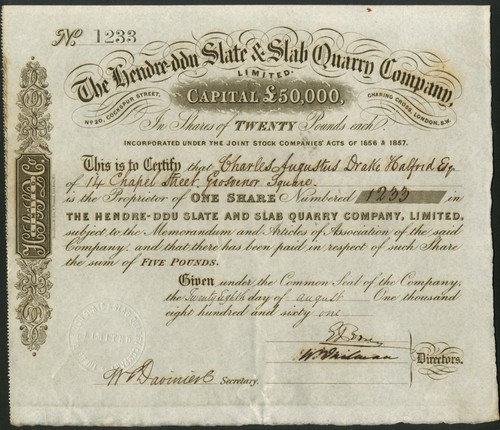 No. 1233
The Hendre-ddu Slate & Slab Quarry Company,
LIMITED.
No 20, COCKSPUR STREET,
CAPITAL £50,000,
CHARING CROSS, LONDON, S.W.
In Shares of TWENTY Pounds each
INCORPORATED UNDER THE JOINT STOCK COMPANIES' ACTS OF 1856 & 1857.
This is to Certify that Charles Augustus Drake Halford Esq.
of 14 Chapel Street, Grosvenor Square
is the Proprietor of ONE SHARE Numbered 1233 in
THE HENDRE-DDU SLATE AND SLAB QUARRY COMPANY, LIMITED,
subject to the Memorandum and Articles of Association of the said
Company; and that there has been paid in respect of such Share
the sum of FIVE POUNDS.
Given under the Common Seal of the Company,
the Twenty Eighth day of August One thousand
eight hundred and sixty one
Directors.
Secretary.